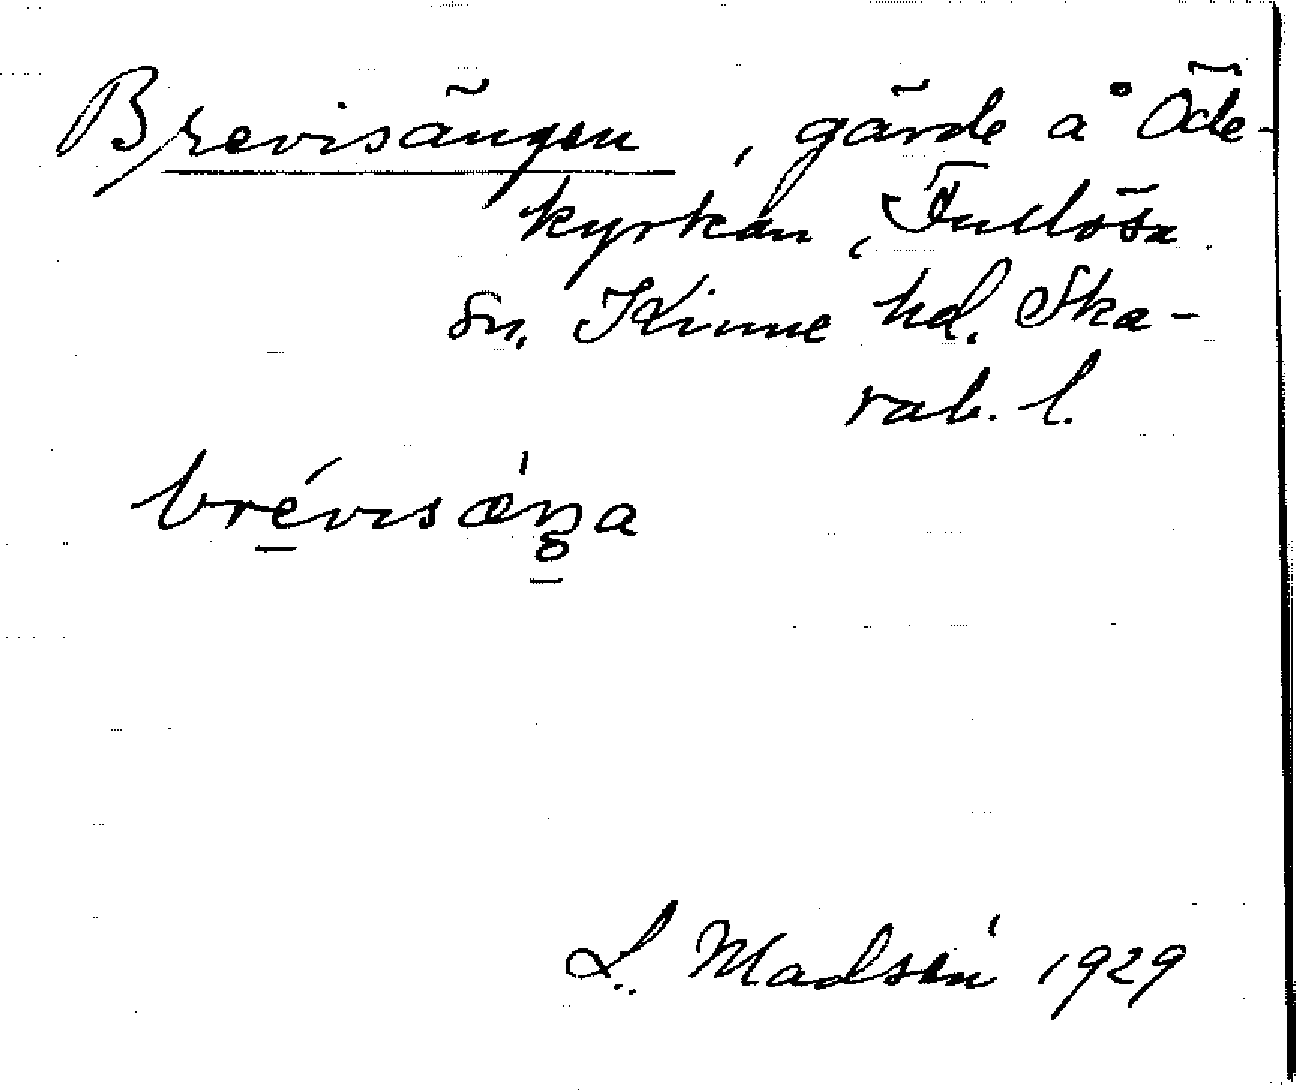 Brevisängen, gärde å Öde-
kyrkan, Fullösa
sn. Kinne hd. Ska-
rab. l.
brévisǽŋa
L. Madsén 1929